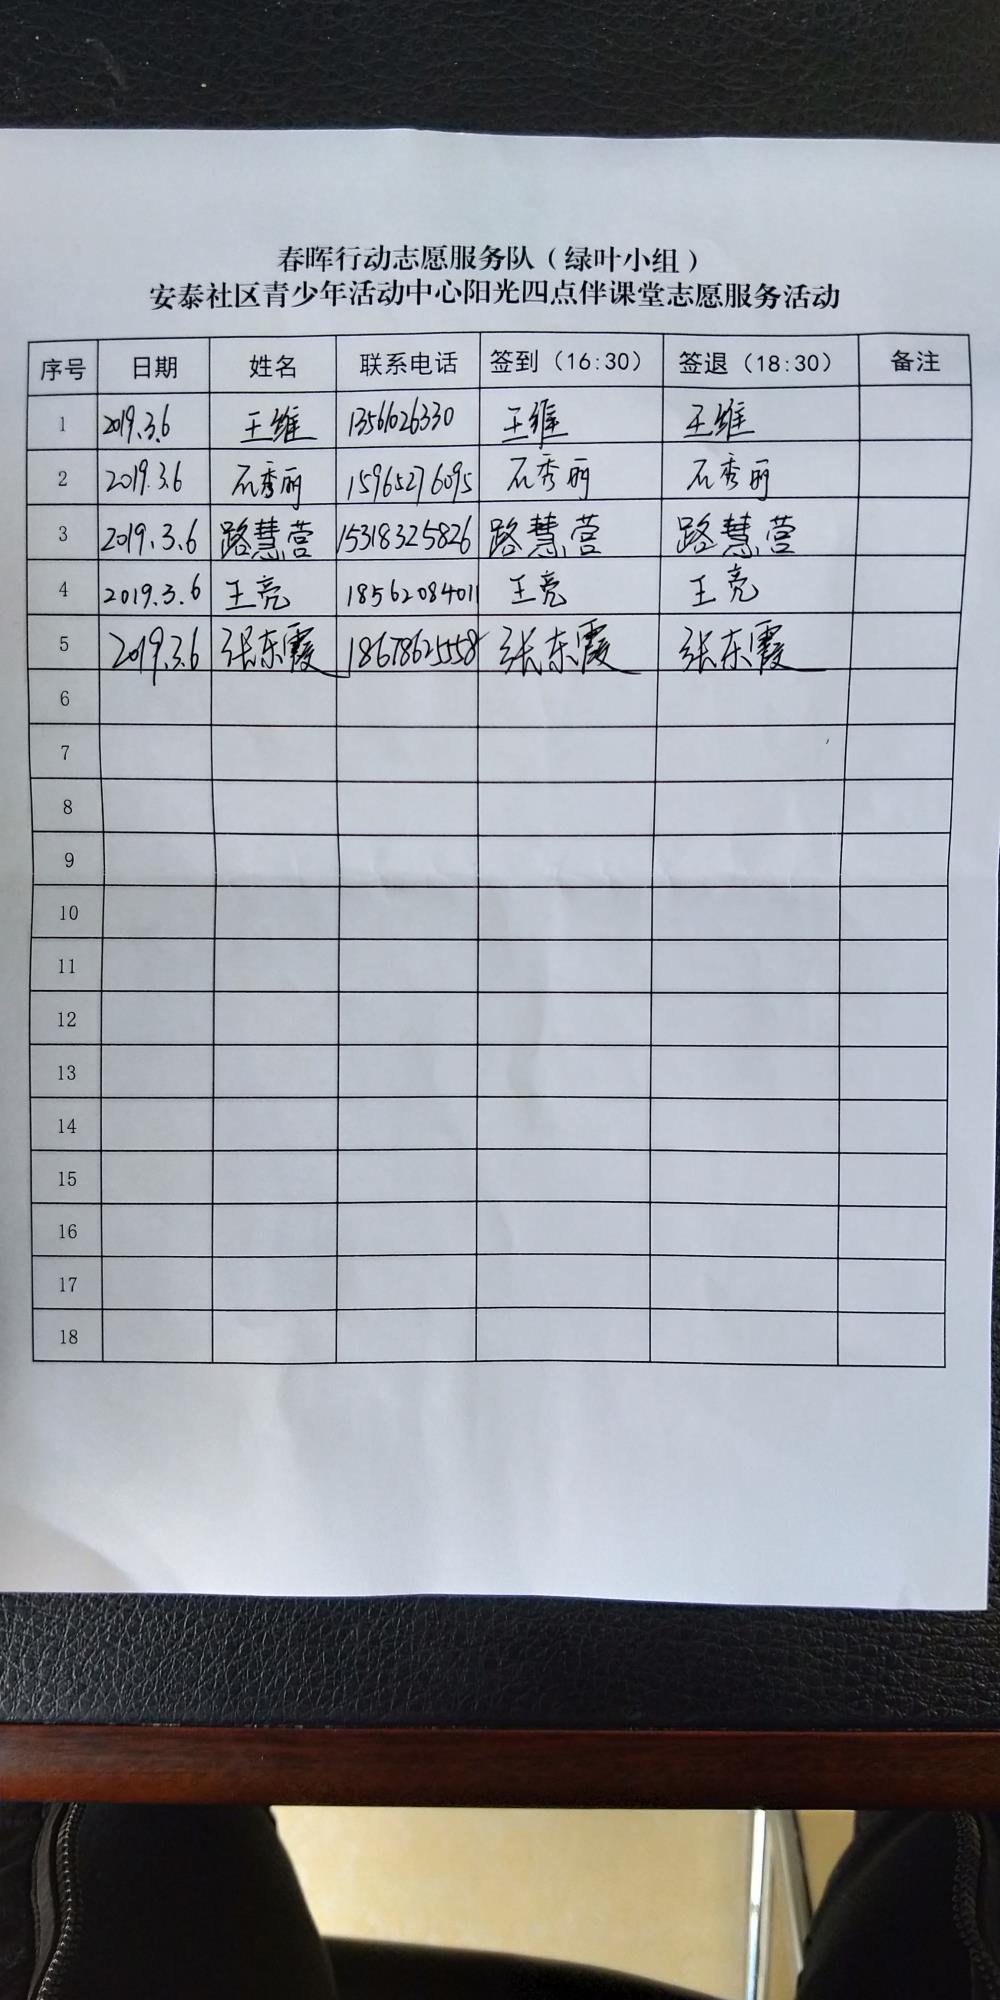 春晖行动志愿服务队（绿叶小组）
安泰社区青少年活动中心阳光四点伴课堂志愿服务活动
序号 日期 姓名 联系电话 签到（16:30） 签退（18:30） 备注
1 2019.3.6 王维 13561026330 王维 王维
2 2019.3.6 石秀丽 15965276095 石秀丽 石秀丽
3 2019.3.6 路慧营 15318325826 路慧营 路慧营
4 2019.3.6 王亮 18562084011 王亮 王亮
5 2019.3.6 张东霞 18678625558 张东霞 张东霞
6
7
8
9
10
11
12
13
14
15
16
17
18